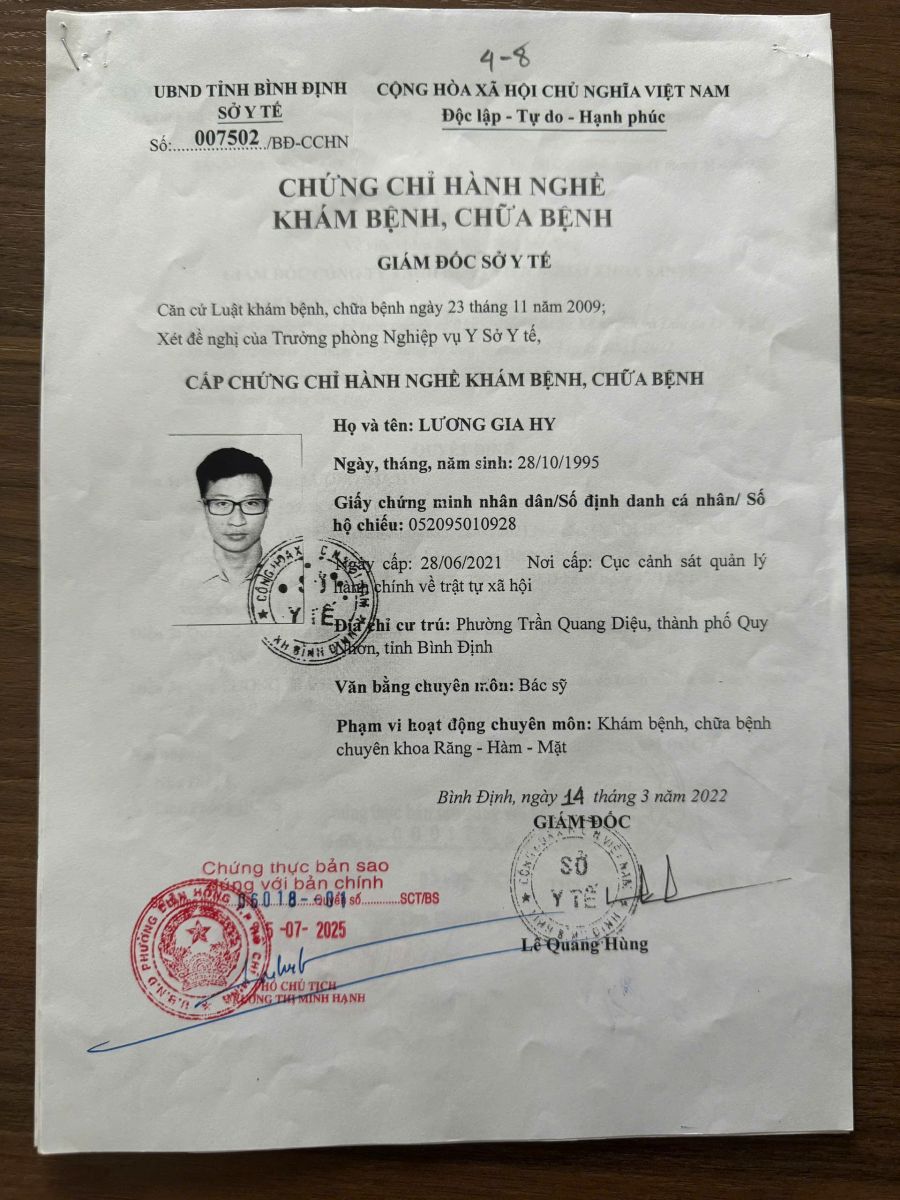 4-8
UBND TỈNH BÌNH ĐỊNH
SỞ Y TẾ
Số:.....007502../BĐ-CCHN
CỘNG HÒA XÃ HỘI CHỦ NGHĨA VIỆT NAM
Độc lập - Tự do - Hạnh phúc
CHỨNG CHỈ HÀNH NGHỀ
KHÁM BỆNH, CHỮA BỆNH
GIÁM ĐỐC SỞ Y TẾ
Căn cứ Luật khám bệnh, chữa bệnh ngày 23 tháng 11 năm 2009;
Xét đề nghị của Trưởng phòng Nghiệp vụ Y Sở Y tế,
CẤP CHỨNG CHỈ HÀNH NGHỀ KHÁM BỆNH, CHỮA BỆNH
Họ và tên: LƯƠNG GIA HY
Ngày, tháng, năm sinh: 28/10/1995
Giấy chứng minh nhân dân/Số định danh cá nhân/ Số
hộ chiếu: 052095010928
Ngày cấp: 28/06/2021 Nơi cấp: Cục cảnh sát quản lý
hành chính về trật tự xã hội
Địa chỉ cư trú: Phường Trần Quang Diệu, thành phố Quy
Nhơn, tỉnh Bình Định
Văn bằng chuyên môn: Bác sỹ
Phạm vi hoạt động chuyên môn: Khám bệnh, chữa bệnh
chuyên khoa Răng - Hàm - Mặt
Bình Định, ngày 14 tháng 3 năm 2022
GIÁM ĐỐC
SỞ
Y TẾ
Lê Quang Hùng
Chứng thực bản sao
đúng với bản chính
quyển số............SCT/BS
5-07-2025
PHÓ CHỦ TỊCH
TRƯƠNG THỊ MINH HẠNH